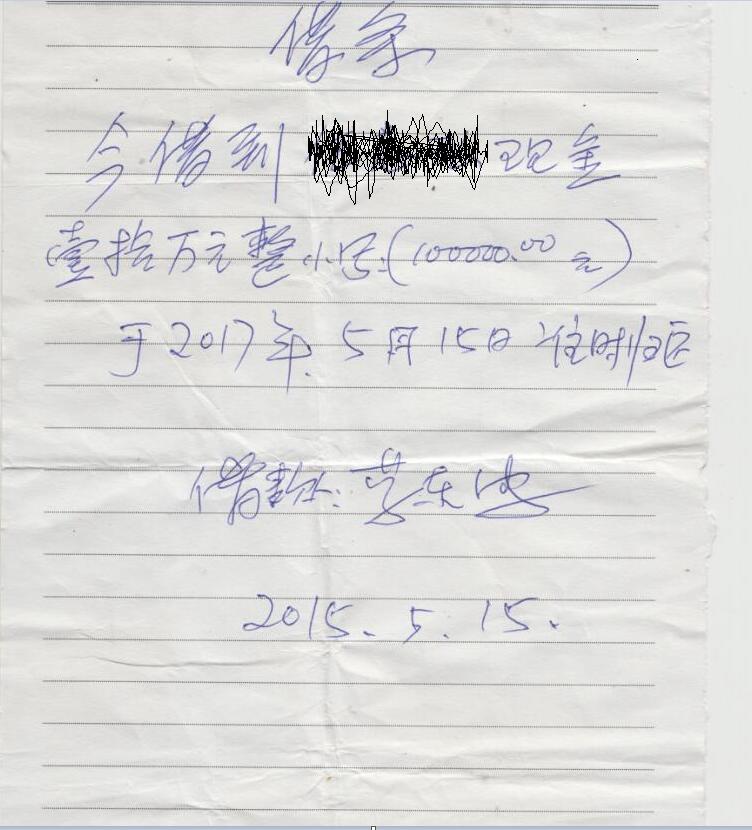 借条
今借到 现金
壹拾万元整小写:(100000.00元)
于2017年.5月15日准时归还
借款人:
2015.5.15.